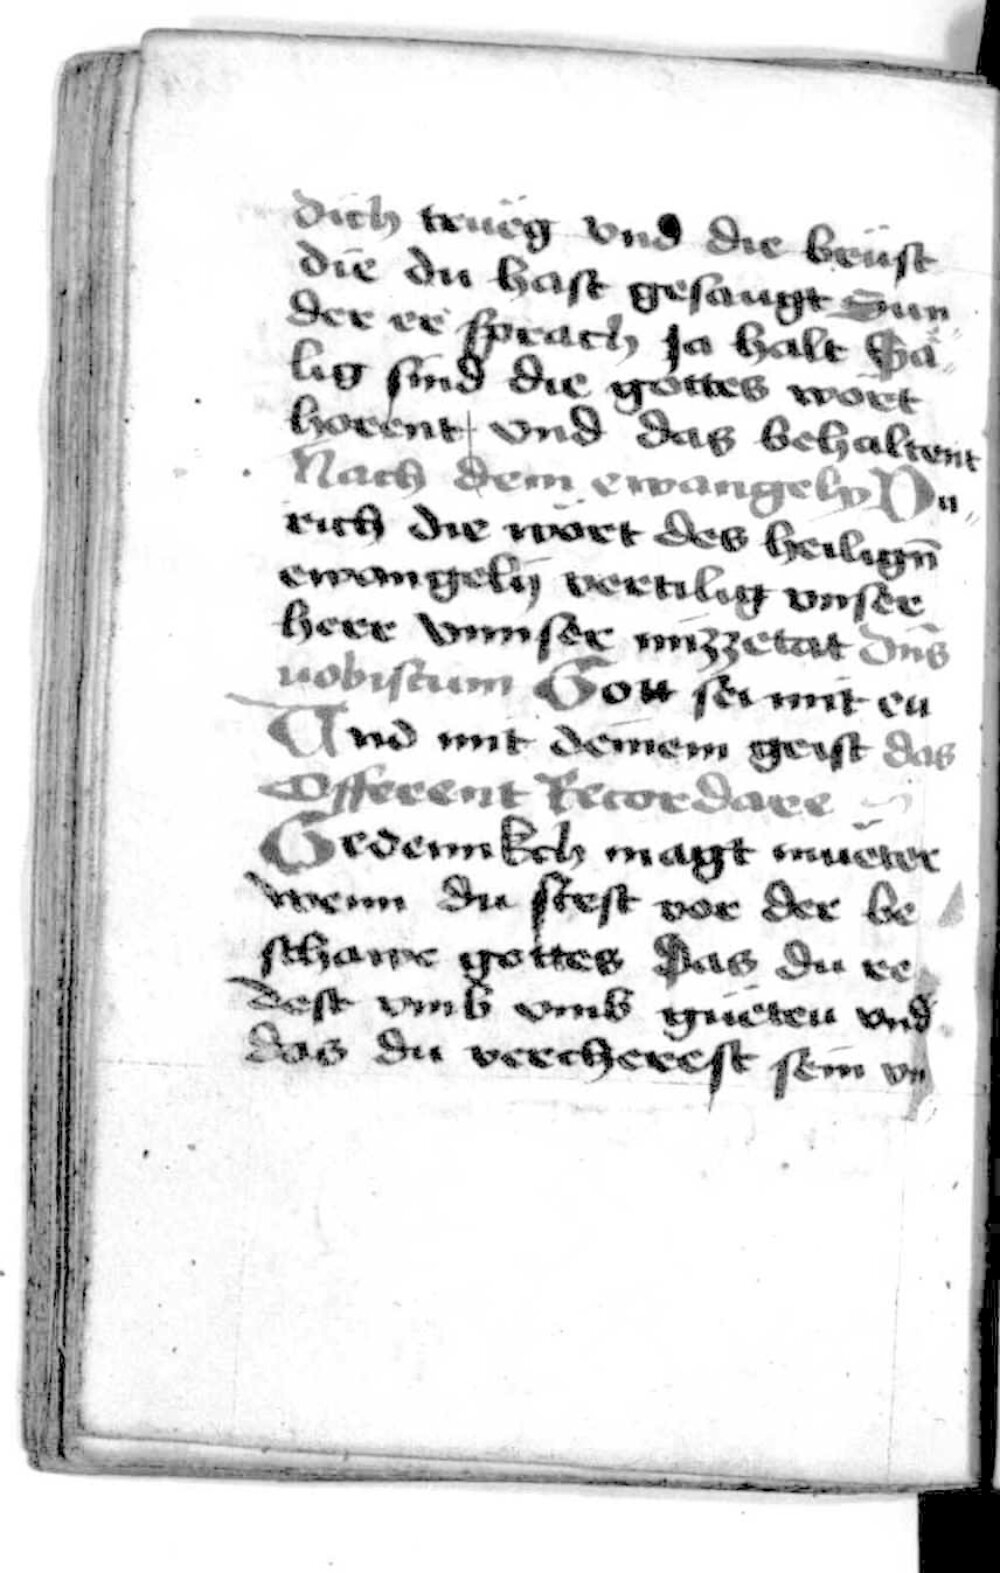 dich trueg vnd die brüst
die du hast gesaugt Sun
der er sprach Ja halt Sä„
lig sind die gottes wort
horent vnd das behaltent
Nach dem ewangely Du„
rich die wort des heilign̄
ewangelÿ vertilig vnser
herr vnnser mizzetat dn̄s
vobiscum Gott sei mit eu
Und mit deinem geist das
Offerent Recordare
Gedennkch magt mueter
wenn du stest vor der be
schawe gottes Das du re
dest vmb vmb güeten vnd
das du vercherest sein vn